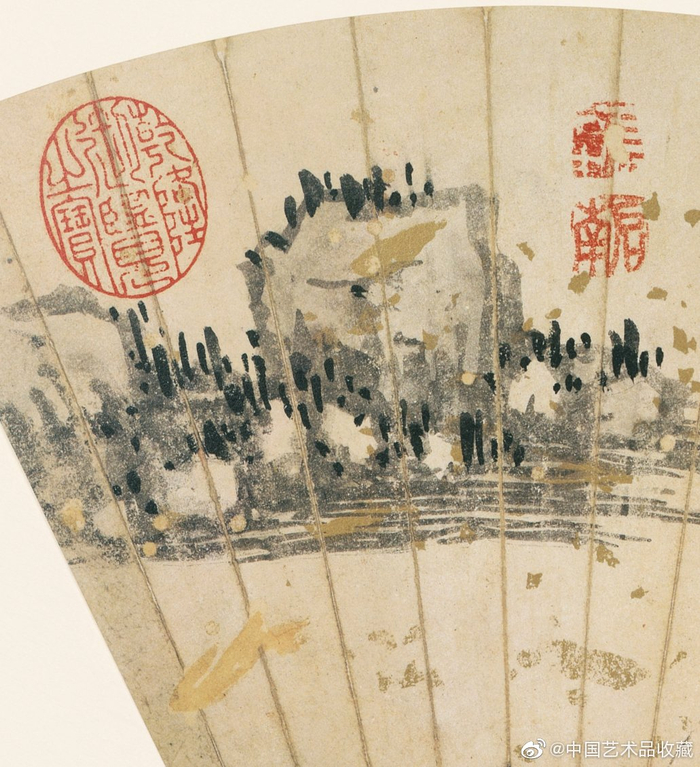 乾隆
御覽
之寶
@中国艺术品收藏